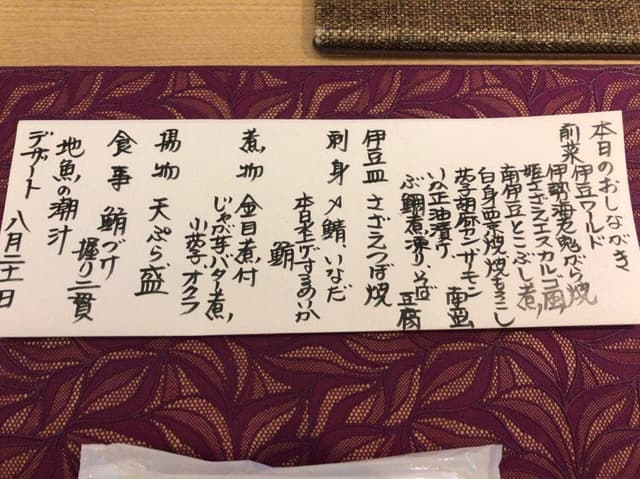 本日のおしながき
前菜 伊豆ワールド
伊勢海老鬼がら焼
姫さざえエスカルゴ風
南伊豆とこぶし煮
白身雲丹焼 焼もろこし
茄子胡麻アンサーモン 南蛮
いか正油漬け
ぶ鯛煮凍り そば豆腐
伊豆皿 さざえつぼ焼
刺身 〆鯖、いなだ
本日水上げするめいか
鮪
煮物 金目煮付
じゃが芋バター煮、
小茄子、オクラ
揚物 天ぷら盛
食事 鮪づけ
握り二貫
地魚の潮汁
デザート 八月二十一日